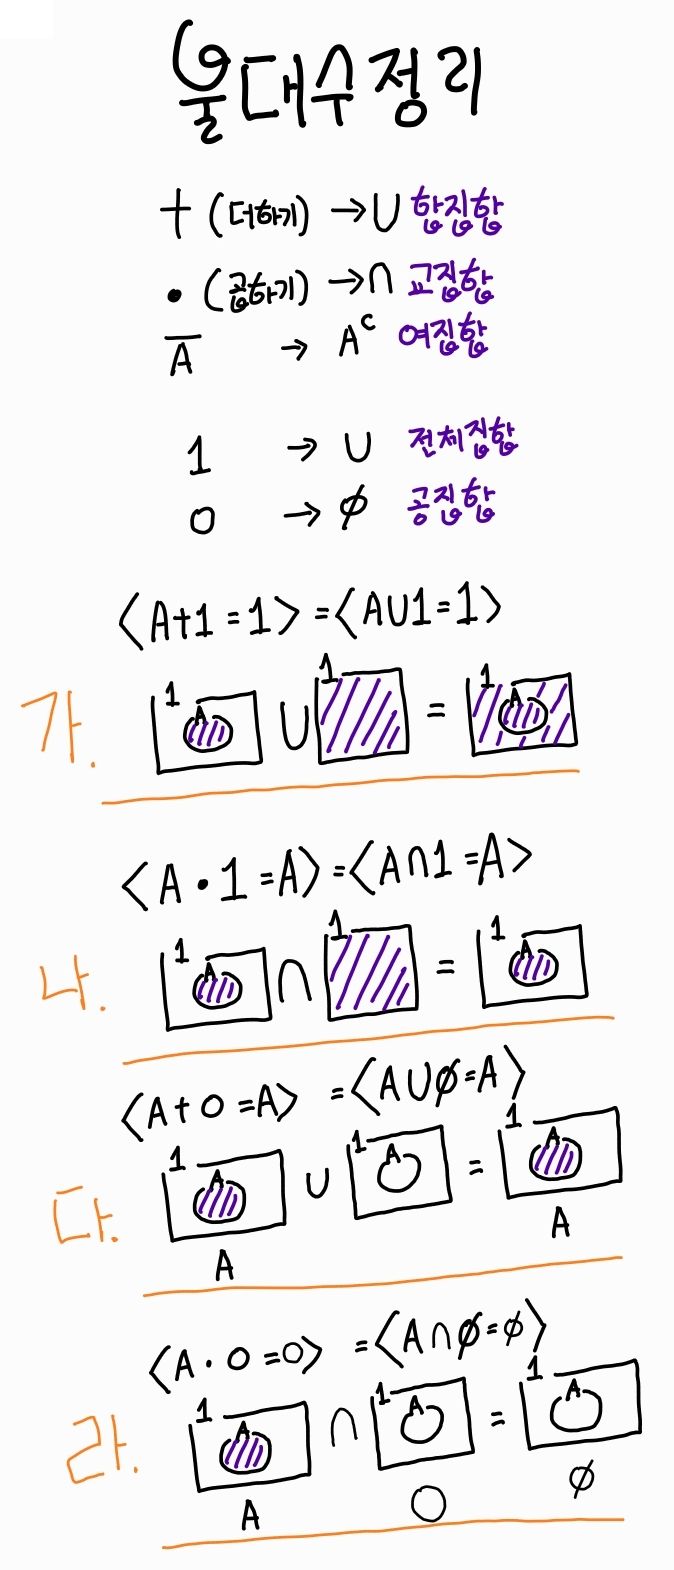 불대수정리
+ (더하기) → ∪ 합집합
• (곱하기) → ∩ 교집합
A̅ → Aᶜ 여집합
1 → U 전체집합
0 → ∅ 공집합
<A+1=1> = <A∪1=1>
가. 1 A ∪ 1 = 1 A
<A•1=A> = <A∩1=A>
나. 1 A ∩ 1 = 1 A
<A+0=A> = <A∪∅=A>
다. 1 A ∪ 1 A = 1 A
A A
<A•0=0> = <A∩∅=∅>
라. 1 A ∩ 1 A = 1 A
A 0 ∅